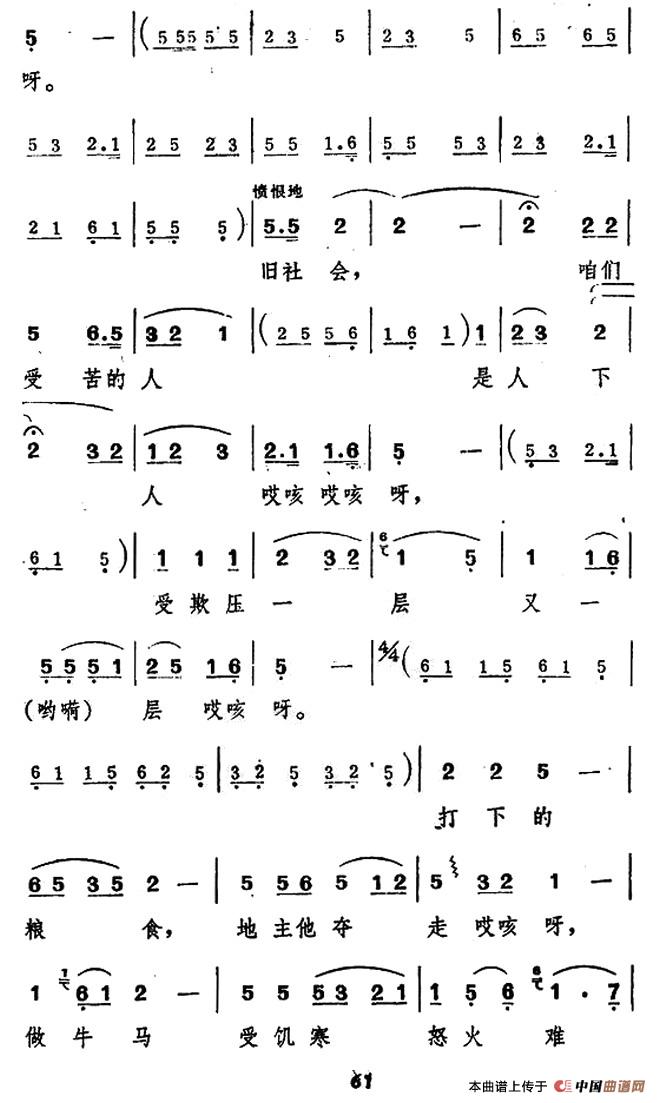 5 — | ( 5 5 5 5 5 | 2 3 5 | 2 3 5 | 6 5 6 5 |
呀。
5 3 2.1 | 2 5 2 3 | 5 5 1.6 | 5 5 5 3 | 2 3 2.1 |
愤恨地
2 1 6 1 | 5 5 5 ) | 5.5 2 | 2 — | 2 2 2 |
旧社 会， 咱们
5 6.5 | 3 2 1 | ( 2 5 5 6 | 1 6 1 ) 1 | 2 3 2 |
受 苦的 人 是 人 下
2 3 2 | 1 2 3 | 2.1 1.6 | 5 — | ( 5 3 2.1 |
人 哎咳 哎咳 呀，
6 1 5 ) | 1 1 1 | 2 3 2 | 6 1 5 | 1 1 6 |
受 欺 压 一 层 又 一
5 5 5 1 | 2 5 1 6 | 5 — | 4/4 ( 6 1 1 5 6 1 5 |
(哟嗬) 层 哎咳 呀。
6 1 1 5 6 2 5 | 3 2 5 3 2 5 ) | 2 2 5 — |
打 下 的
6 5 3 5 2 — | 5 5 6 5 1 2 | 5 3 2 1 — |
粮 食， 地 主他 夺 走 哎咳 呀，
1 1 6 1 2 — | 5 5 5 3 2 1 | 1 5 6 6 1 . 7 |
做 牛 马 受 饥 寒 怒 火 难
61
本曲谱上传于 中国曲谱网